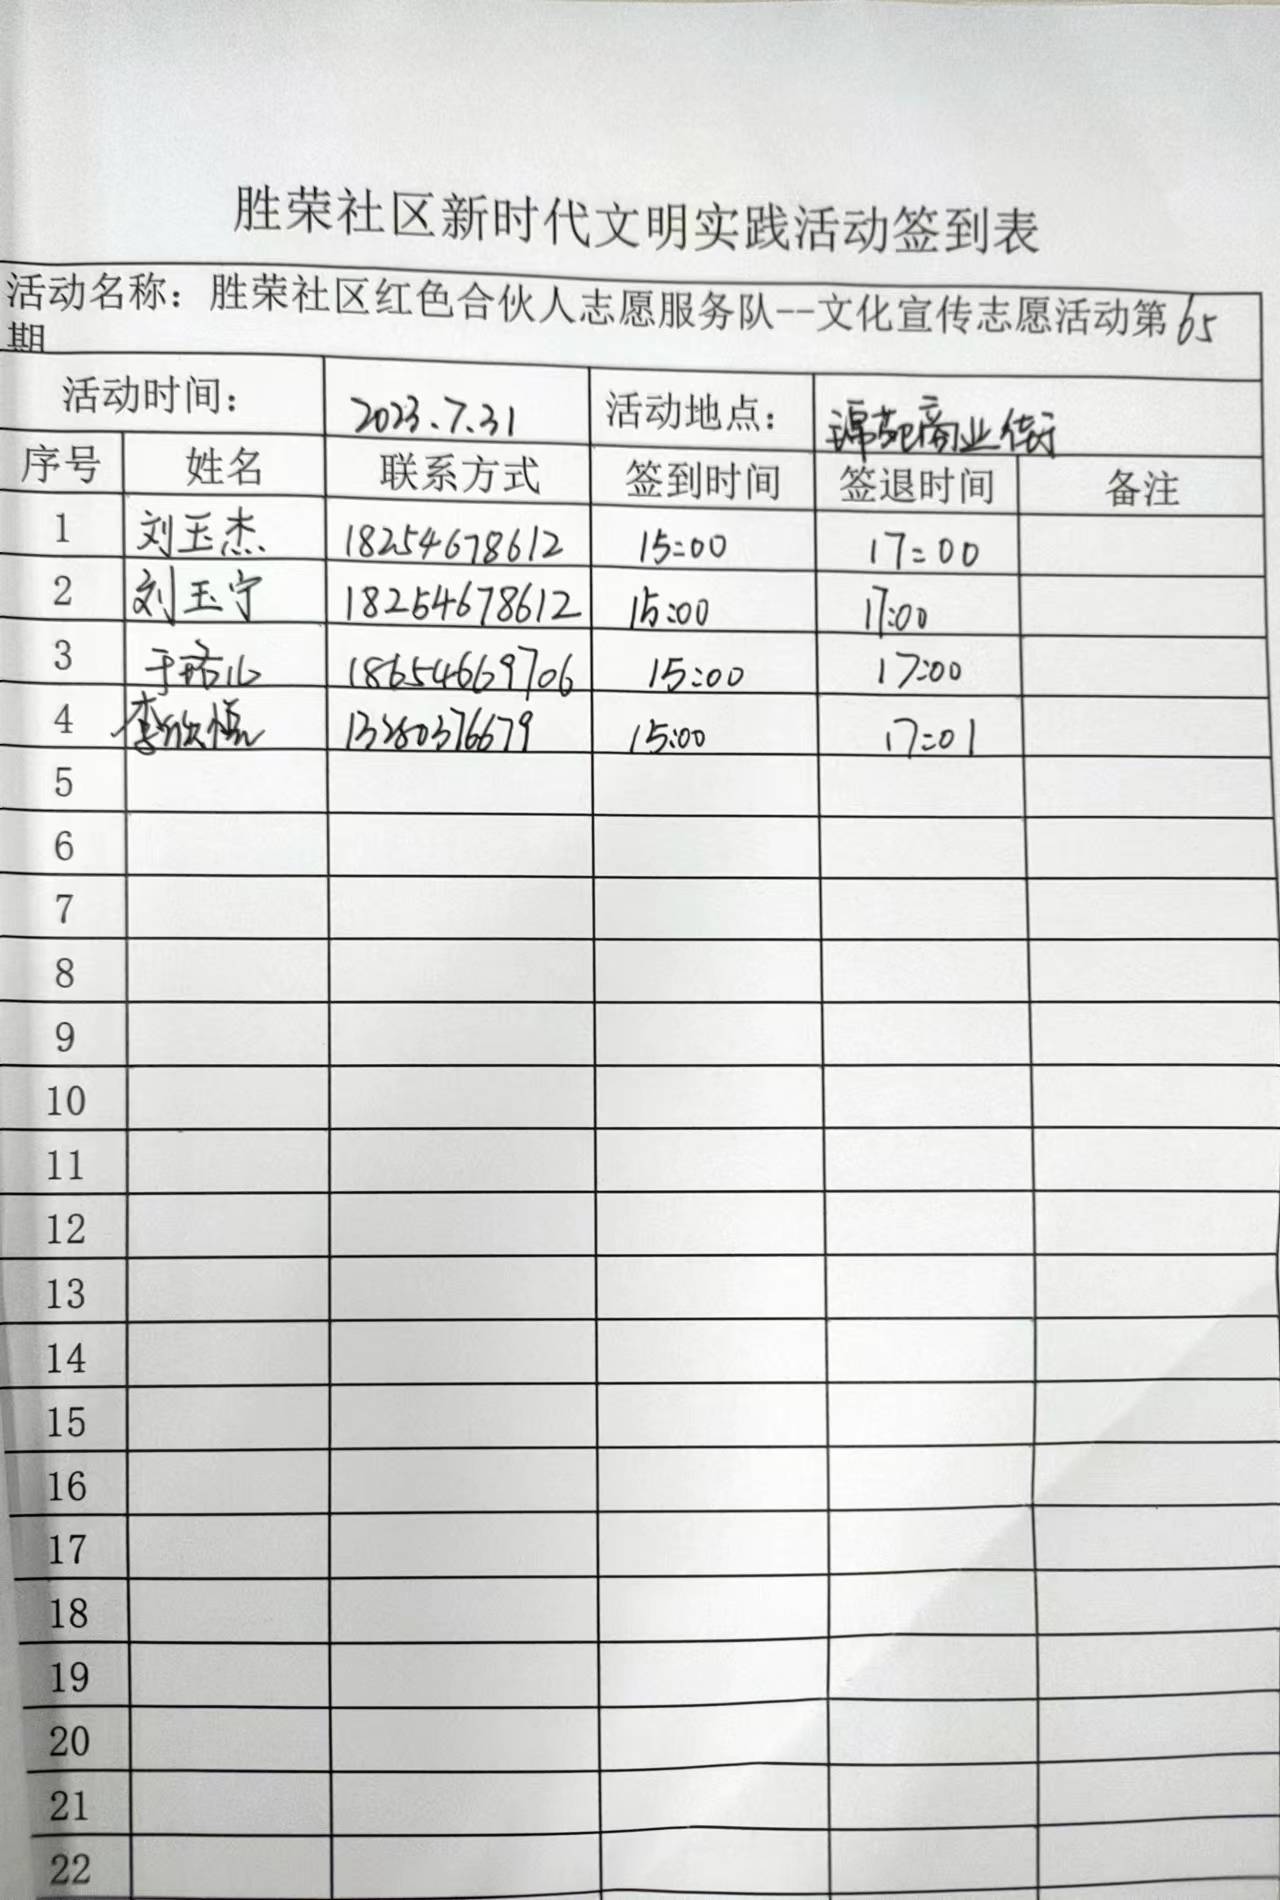 胜荣社区新时代文明实践活动签到表
活动名称：胜荣社区红色合伙人志愿服务队--文化宣传志愿活动第65
期
活动时间： 2023.7.31 活动地点： 锦苑商业街
序号 姓名 联系方式 签到时间 签退时间 备注
1 刘玉杰 18254678612 15:00 17:00
2 刘玉宁 18254678612 15:00 17:00
3 18654669706 15:00 17:00
4 13280376679 15:00 17:01
5
6
7
8
9
10
11
12
13
14
15
16
17
18
19
20
21
22